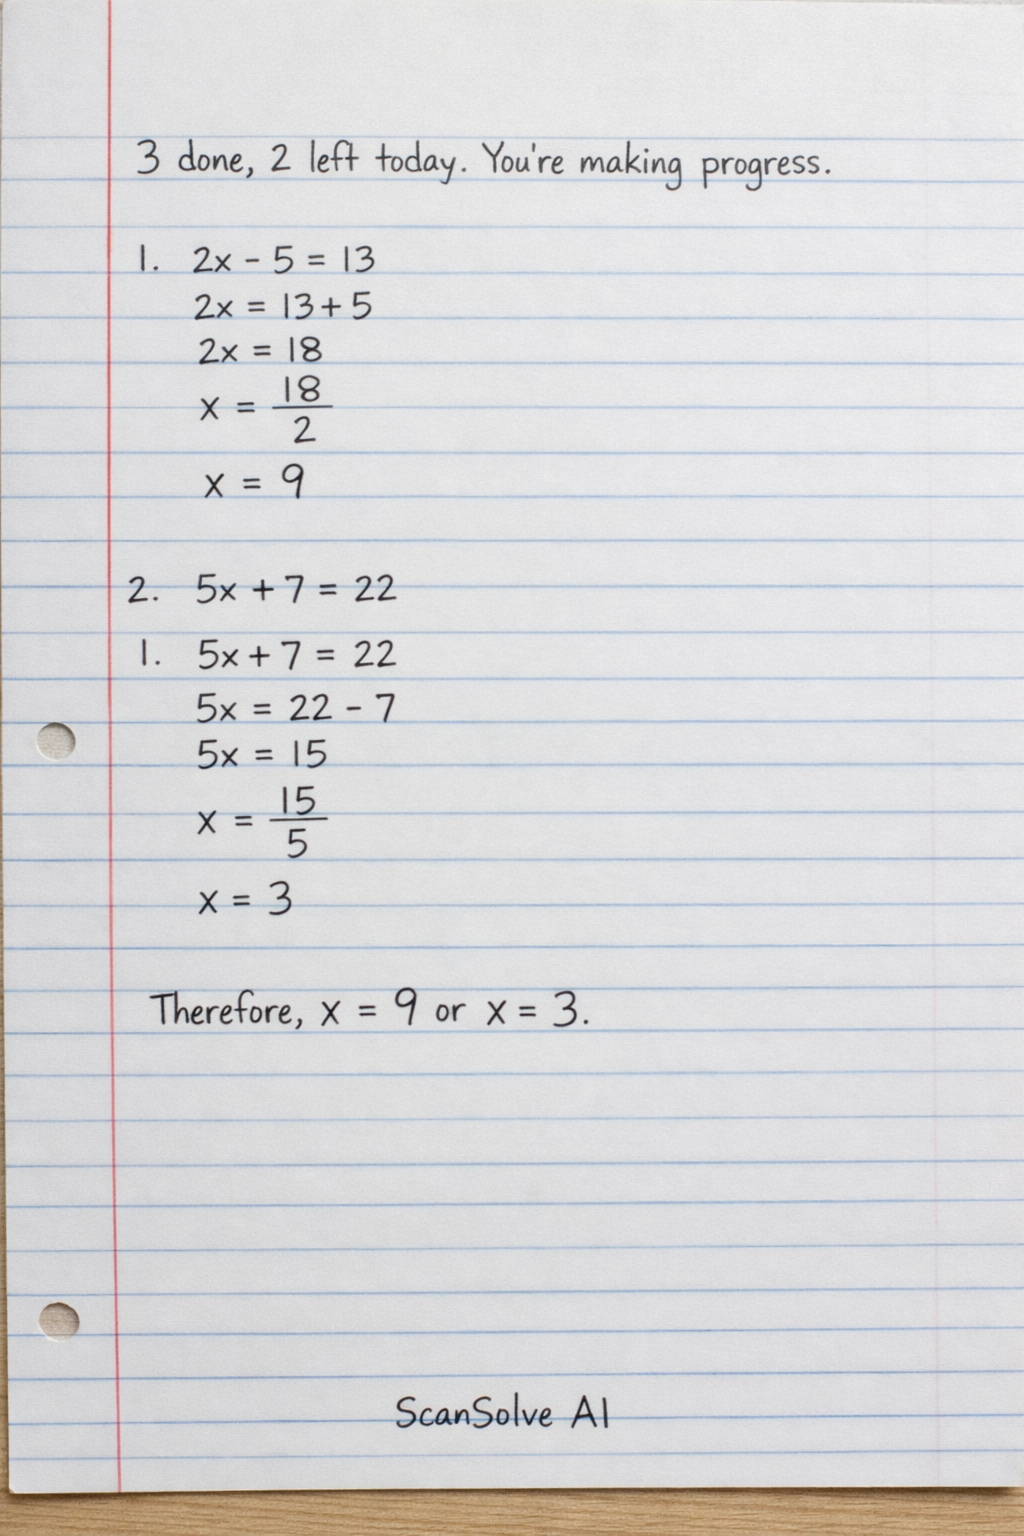 3 done, 2 left today. You're making progress.
1. 2x - 5 = 13
2x = 13 + 5
2x = 18
x = 18/2
x = 9
2. 5x + 7 = 22
1. 5x + 7 = 22
5x = 22 - 7
5x = 15
x = 15/5
x = 3
Therefore, x = 9 or x = 3.
ScanSolve AI